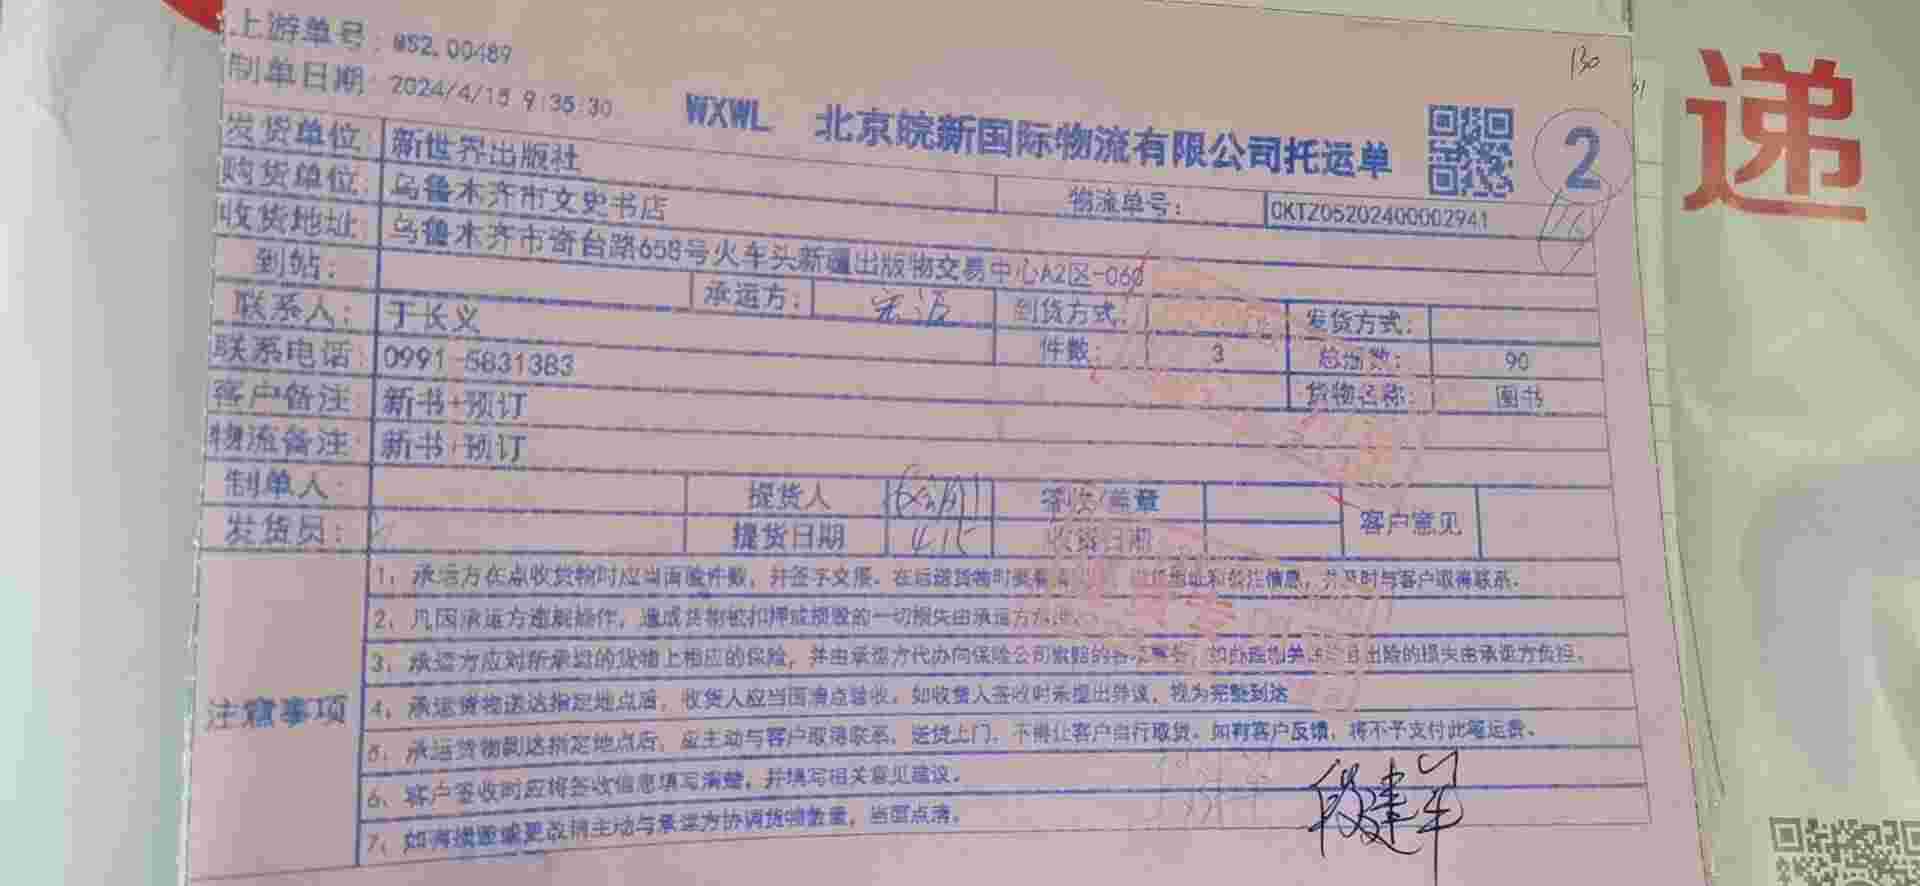 上游单号：WS2.00489
130
制单日期：2024/4/15 9:35:30
WXWL 北京皖新国际物流有限公司托运单
2
递
发货单位：新世界出版社
物流单号：CKTZ05202400002941
购货单位：乌鲁木齐市文史书店
收货地址：乌鲁木齐市奇台路658号火车头新疆出版物交易中心A2区-060
到站： 承运方： 宏远 到货方式： 发货方式：
联系人：于长义 件数： 3 总汤数： 90
联系电话：0991-5831383 货物名称： 图书
客户备注 新书+预订
物流备注 新书+预订
制单人： 提货人 签收/盖章 客户意见
发货员： 提货日期 4.15 收货日期
注意事项
1、承运方在点收货物时应当面验件数，并签字交接。在运送货物时要看清 备注信息，并及时与客户取得联系。
2、凡因承运方违规操作，造成货物被扣押或损毁的一切损失由承运方
3、承运方应对所承运的货物上相应的保险，并由承运方代办向保险公司索赔的各项事务， 出险的损失由承运方负担。
4、承运货物送达指定地点后，收货人应当面清点验收。如收货人签收时未提出异议，视为完整到达
5、承运货物到达指定地点后，应主动与客户取得联系，送货上门，不得让客户自行取货。如有客户反馈，将不予支付此笔运费。
6、客户签收时应将签收信息填写清楚，并填写相关意见建议。
7、 变更 主动与承运方协调货物数量，当面点清。
段建军